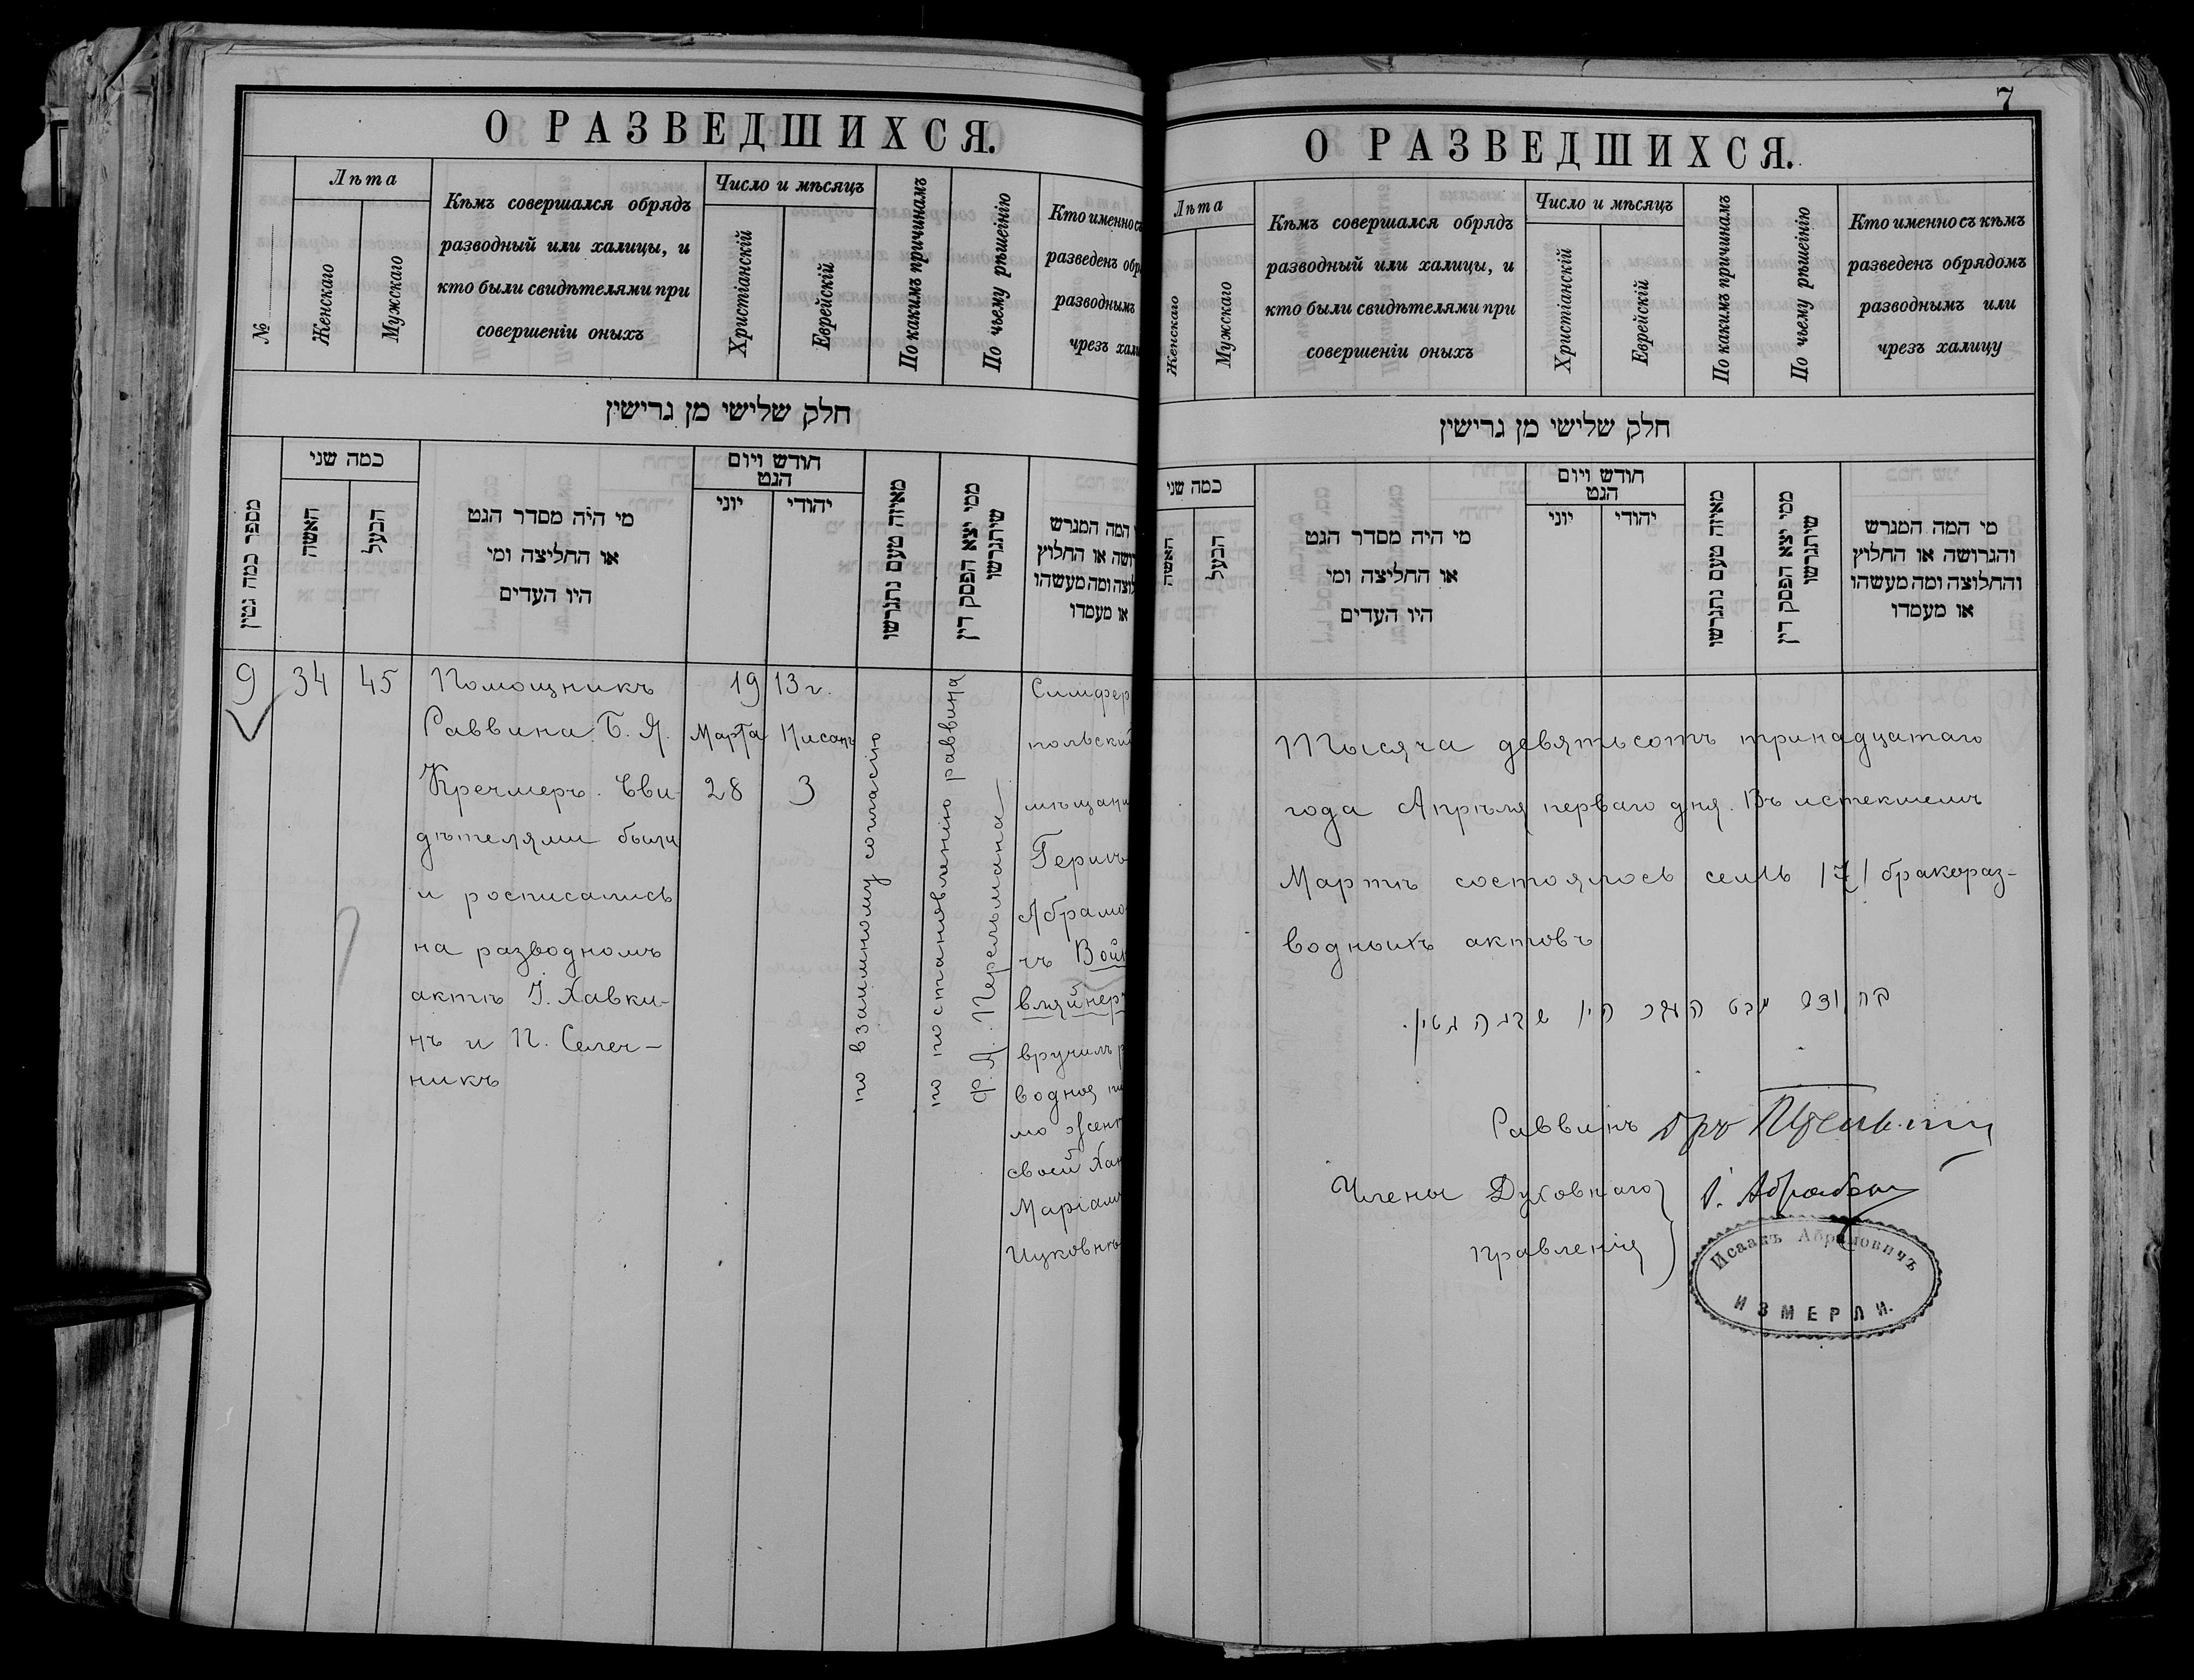 О РАЗВЕДШИХСЯ.
№
Лѣта
Женскаго
Мужскаго
Кѣмъ совершался обрядъ
разводный или халицы, и
кто были свидѣтелями при
совершеніи оныхъ
Число и мѣсяцъ
Христіанскій
Еврейскій
По какимъ причинамъ
По чьему рѣшенію
Кто именно съ
разведенъ обр
разводнымъ
чрезъ хали
חלק שלישי מן גרישין
מספר כמה גטין
כמה שני
האשה
הבעל
מי היה מסדר הגט
או החליצה ומי
היו העדים
חודש ויום
הגט
יוני
יהודי
מאיזה טעם נתגרשו
ממי יצא הפסק דין
שיתגרשו
המה המגרש
ושה או החלוץ
לוצה ומה מעשהו
או מעמדו
9 34 45
Помощникъ
Раввина Б. Я.
Кречмеръ. Сви-
дѣтелями были
и росписались
на разводномъ
актѣ I. Хавки-
нъ и П. Селеч-
никъ
1913 г.
Марта Нисанъ
28 3
по взаимному согласію
по постановленію раввина
Ф. Я. Перельмана
Симфер
польскій
мѣщани
Герить
Абрамо
чъ Вой
вляйнеръ
вручилъ р
водное пи
мо женѣ
своей Хан
Маріам
Ицковнѣ
7
О РАЗВЕДШИХСЯ.
Лѣта
Женскаго
Мужскаго
Кѣмъ совершался обрядъ
разводный или халицы, и
кто были свидѣтелями при
совершеніи оныхъ
Число и мѣсяцъ
Христіанскій
Еврейскій
По какимъ причинамъ
По чьему рѣшенію
Кто именно съ кѣмъ
разведенъ обрядомъ
разводнымъ или
чрезъ халицу
חלק שלישי מן גרישין
כמה שני
האשה
הבעל
מי היה מסדר הגט
או החליצה ומי
היו העדים
חודש ויום
הגט
יוני
יהודי
מאיזה טעם נתגרשו
ממי יצא הפסק דין
שיתגרשו
מי המה המגרש
והגרושה או החלוץ
והחלוצה ומה מעשהו
או מעמדו
Тысяча девятьсотъ тринадцатаго
года Апрѣля перваго дня. Въ истекшемъ
Мартѣ состоялось семь /7/ бракораз-
водныхъ актовъ
היו שבעה גטין.
Раввинъ
Члены Духовнаго
правленія
Исаакъ Абрамовичъ
ИЗМЕРЛИ.